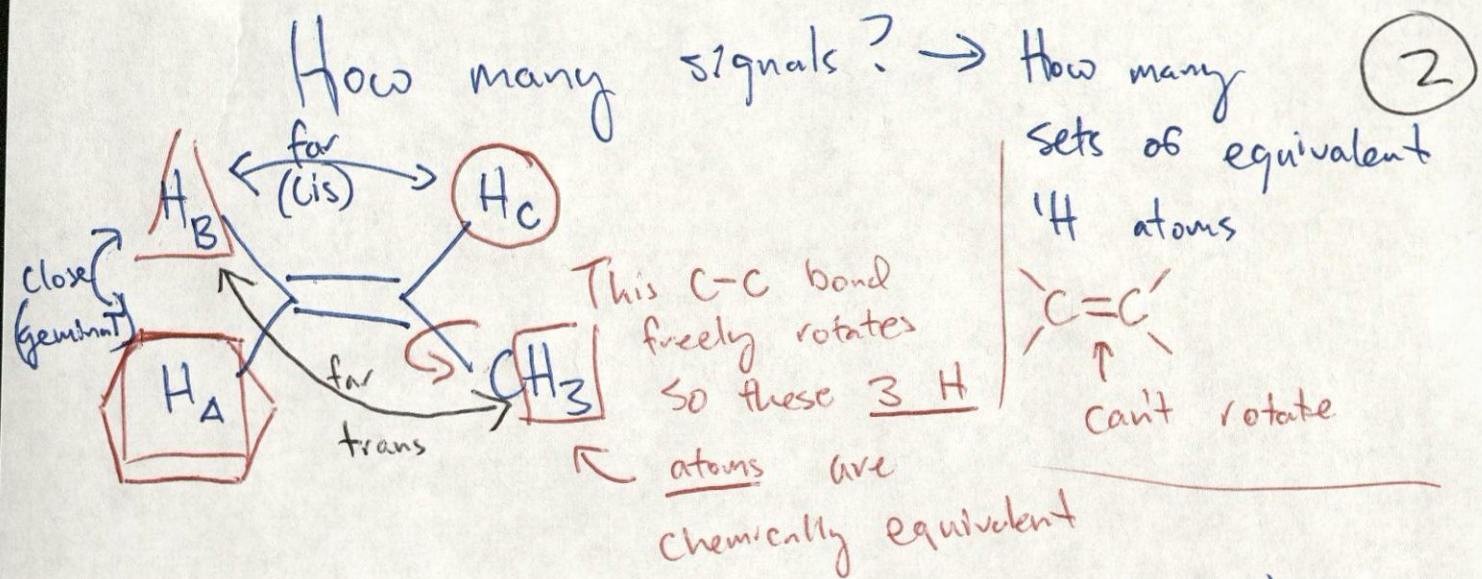 How many signals? → How many
sets of equivalent
¹H atoms
2
far
(cis)
H_B
H_C
close
(geminal)
H_A
far
trans
CH₃
This C-C bond
freely rotates
so these 3 H
atoms are
chemically equivalent
C=C
↑
can't rotate